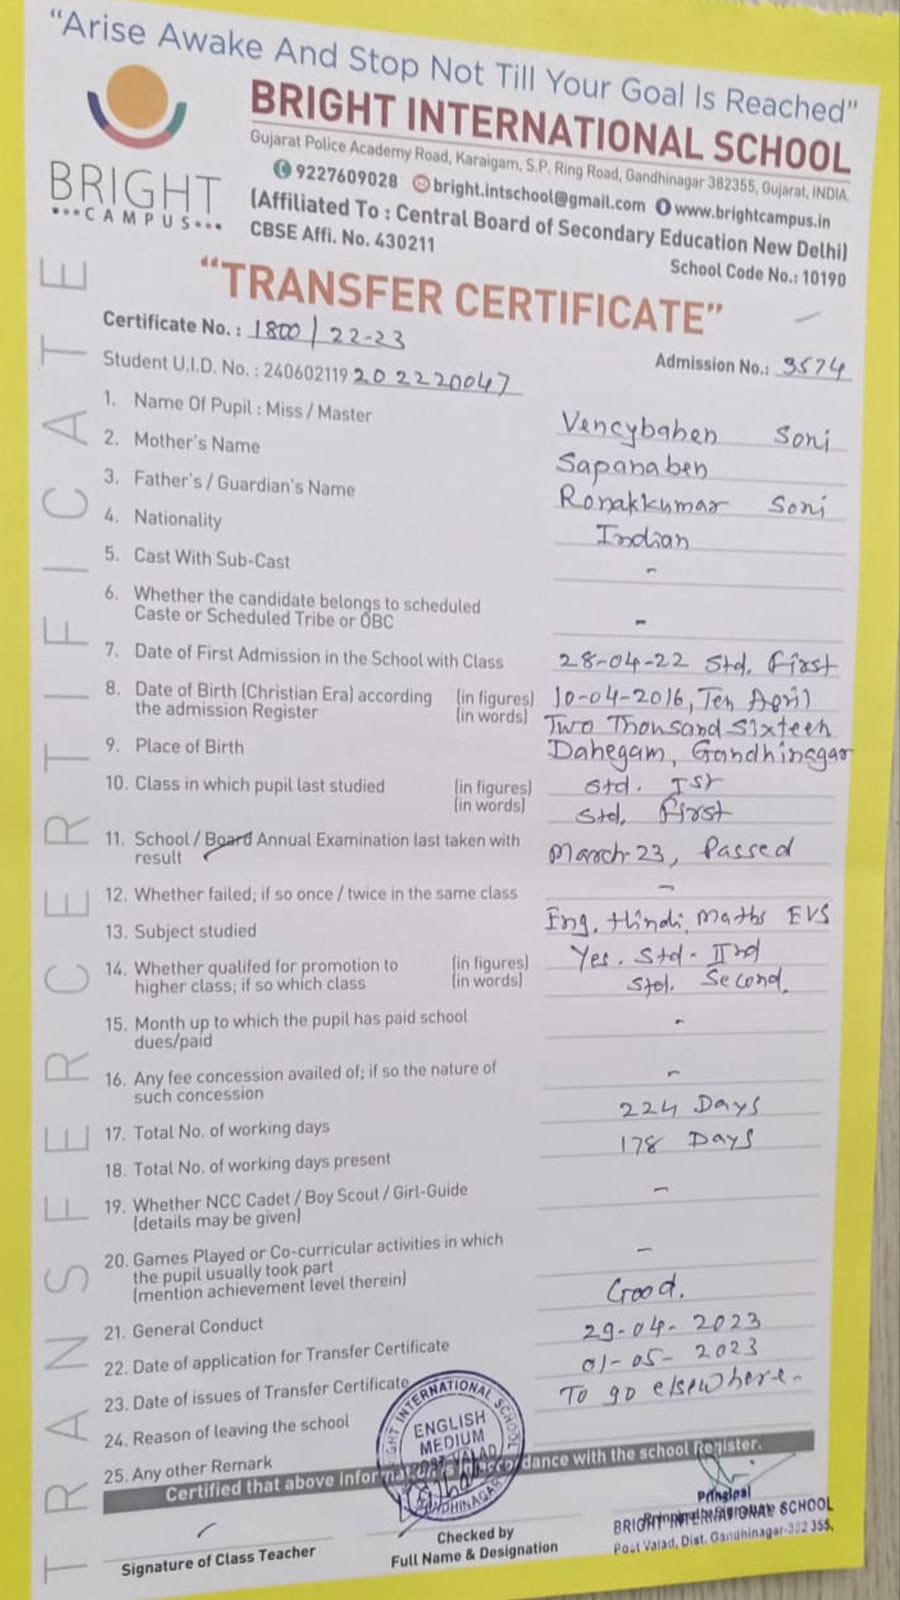 "Arise Awake And Stop Not Till Your Goal Is Reached"
BRIGHT
•••CAMPUS•••
BRIGHT INTERNATIONAL SCHOOL
Gujarat Police Academy Road, Karaigam, S.P. Ring Road, Gandhinagar 382355, Gujarat, INDIA.
9227609028 bright.intschool@gmail.com www.brightcampus.in
(Affiliated To : Central Board of Secondary Education New Delhi)
CBSE Affi. No. 430211
School Code No.: 10190
"TRANSFER CERTIFICATE"
TRANSFER CERTIFICATE
Certificate No. : 1800 / 22-23
Admission No.: 3574
Student U.I.D. No. : 240602119 202220047
1. Name Of Pupil : Miss / Master Vencybahen Soni
2. Mother's Name Sapanaben
3. Father's / Guardian's Name Ronakkumar Soni
4. Nationality Indian
5. Cast With Sub-Cast -
6. Whether the candidate belongs to scheduled
Caste or Scheduled Tribe or OBC -
7. Date of First Admission in the School with Class 28-04-22 Std. First
8. Date of Birth (Christian Era) according (in figures) 10-04-2016, Ten April
the admission Register (in words) Two Thousand Sixteen
9. Place of Birth Dahegam, Gandhinagar
10. Class in which pupil last studied (in figures) Std. Ist
(in words) Std. First
11. School / Board Annual Examination last taken with
result March-23, Passed
12. Whether failed; if so once / twice in the same class -
13. Subject studied Eng, Hindi, Maths EVS
14. Whether qualifed for promotion to (in figures) Yes. Std - IInd
higher class; if so which class (in words) Std. Second.
15. Month up to which the pupil has paid school
dues/paid -
16. Any fee concession availed of; if so the nature of
such concession -
17. Total No. of working days 224 Days
18. Total No. of working days present 178 Days
19. Whether NCC Cadet / Boy Scout / Girl-Guide
(details may be given) -
20. Games Played or Co-curricular activities in which
the pupil usually took part
(mention achievement level therein) -
21. General Conduct Good.
22. Date of application for Transfer Certificate 29-04-2023
23. Date of issues of Transfer Certificate 01-05-2023
24. Reason of leaving the school To go elsewhere-
25. Any other Remark
Certified that above information is in accordance with the school Register.
BRIGHT INTERNATIONAL SCHOOL
ENGLISH
MEDIUM
POST VALAD
GANDHINAGAR
Signature of Class Teacher
Checked by
Full Name & Designation
Principal
BRIGHT INTERNATIONAL SCHOOL
Post Valad, Dist. Gandhinagar-382 355.